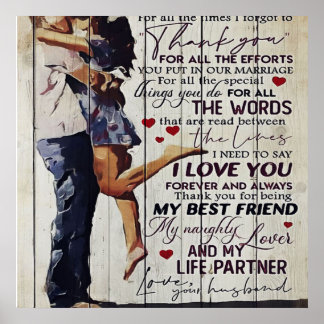 For all the times I forgot to
"Thank you"
FOR ALL THE EFFORTS
YOU PUT IN OUR MARRIAGE
For all the special
things you do FOR ALL
THE WORDS
that are read between
the lines
I NEED TO SAY
I LOVE YOU
FOREVER AND ALWAYS
Thank you for being
MY BEST FRIEND
My naughty Lover
AND MY
LIFE PARTNER
Love,
your husband